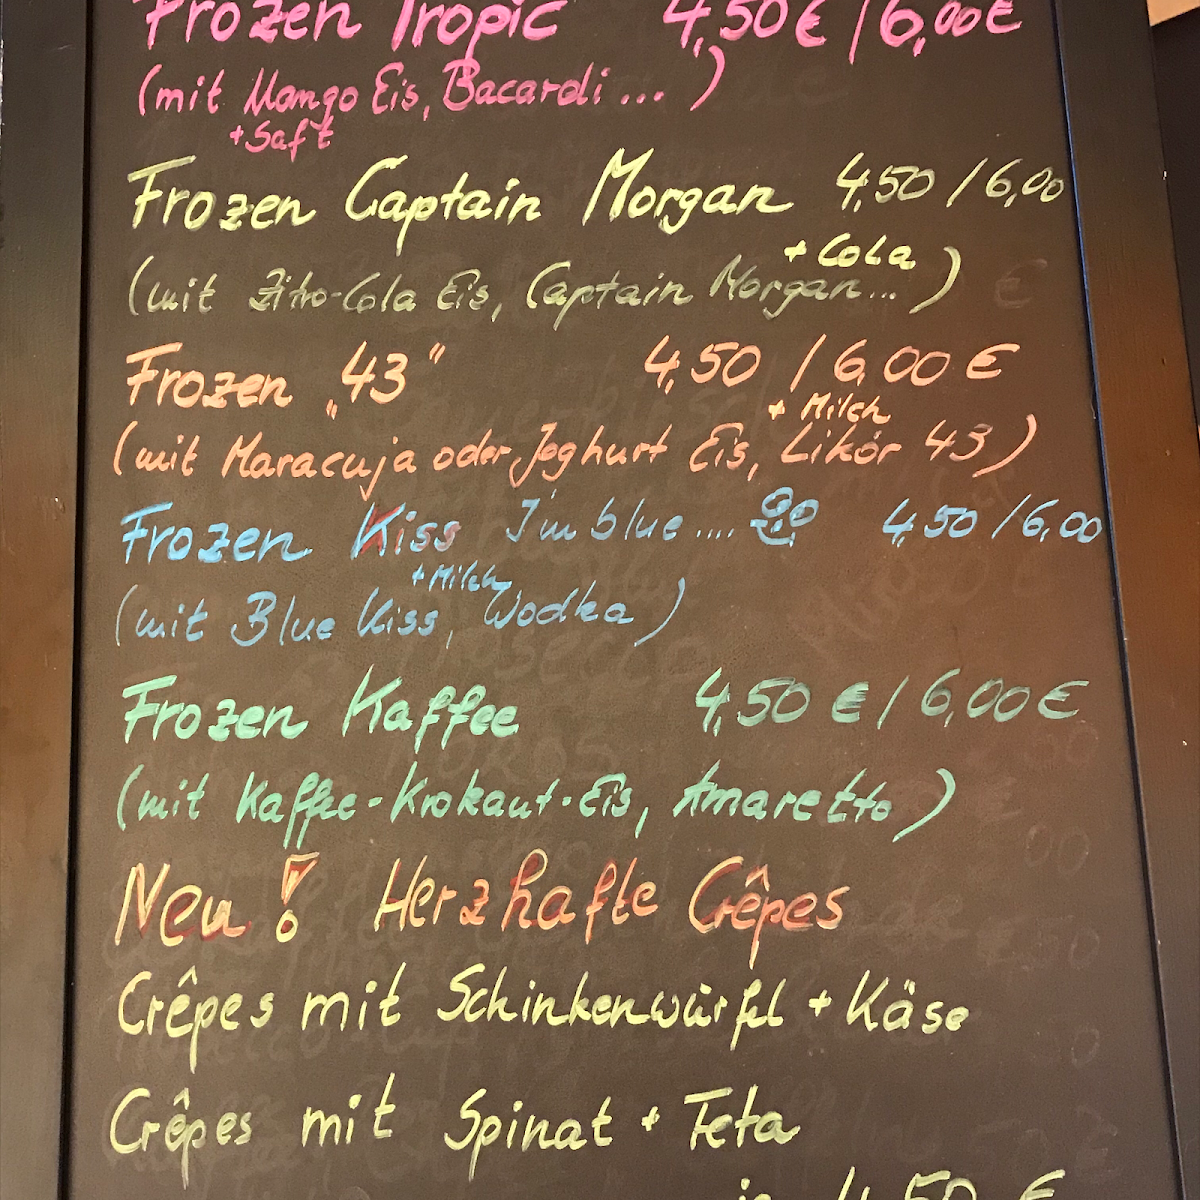 Frozen Tropic 4,50 € / 6,00 €
(mit Mango Eis, Bacardi ... )
+ Saft
Frozen Captain Morgan 4,50 / 6,00
+ Cola
(mit Zitro-Cola Eis, Captain Morgan... )
Frozen „43“ 4,50 / 6,00 €
+ Milch
(mit Maracuja oder Joghurt Eis, Likör 43)
Frozen Kiss I'm blue .... 4,50 / 6,00
+ Milch
(mit Blue Kiss, Wodka)
Frozen Kaffee 4,50 € / 6,00 €
(mit Kaffee-Krokant-Eis, Amaretto)
Neu! Herzhafte Crêpes
Crêpes mit Schinkenwürfel + Käse
Crêpes mit Spinat + Feta
je 4,50 €